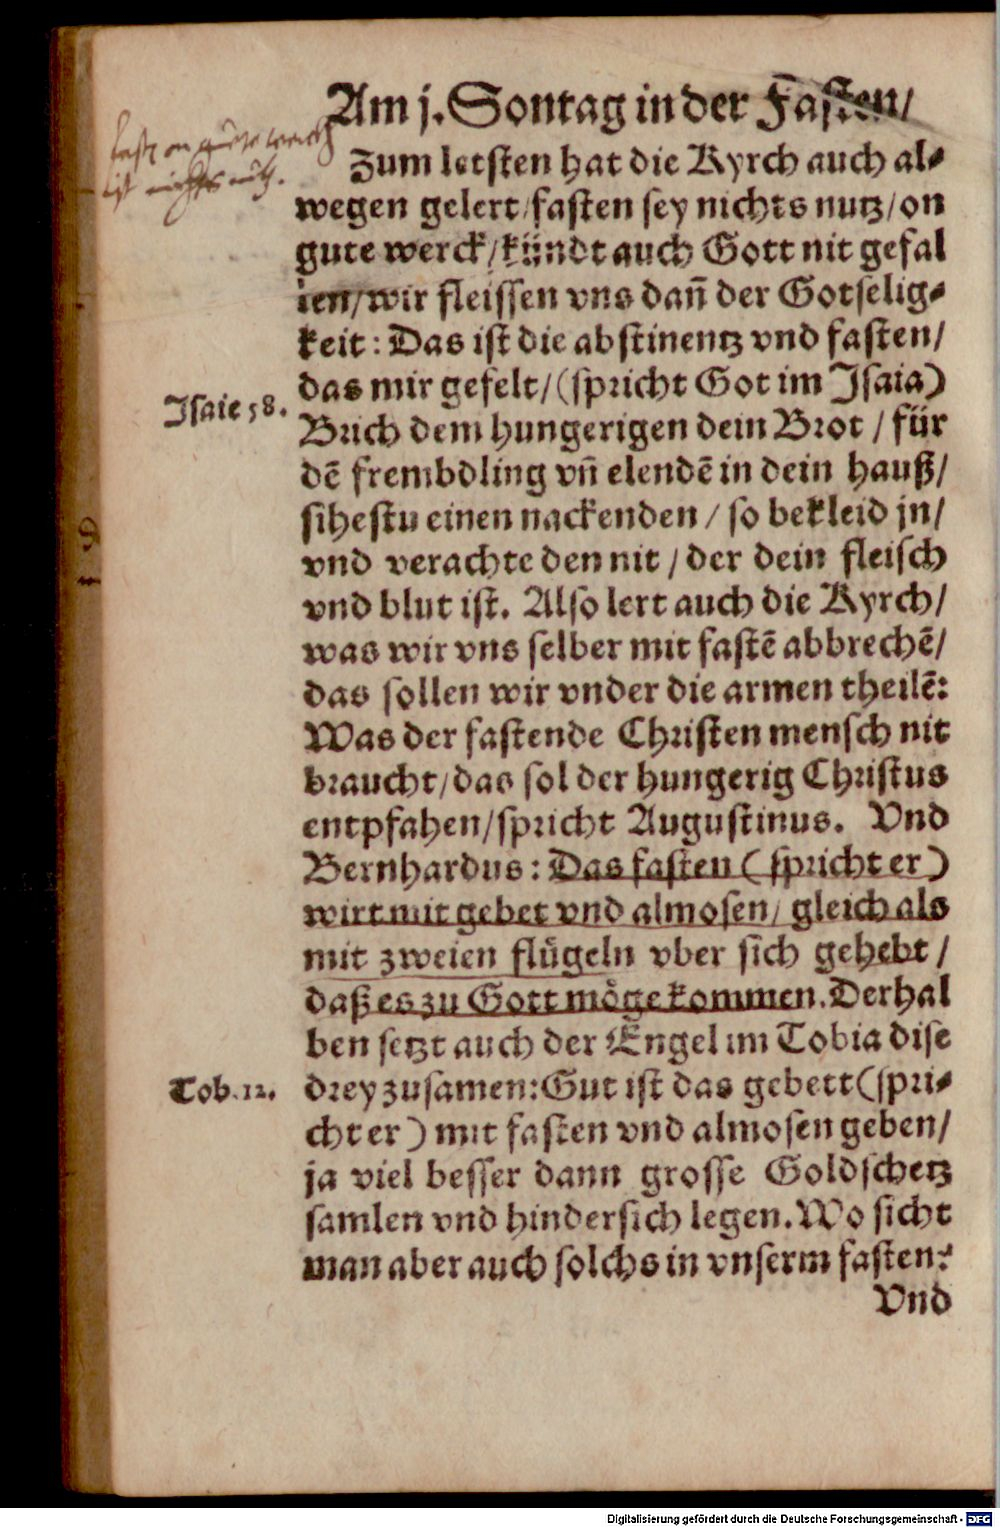 Am j. Sontag in der Fasten/
fast on gute werck
ist nichts nutz.
Zum letsten hat die Kyrch auch al⸗
wegen gelert/fasten sey nichts nutz/on
gute werck/kündt auch Gott nit gefal
len/wir fleissen vns dañ der Gotselig⸗
keit: Das ist die abstinentz vnd fasten/
das mir gefelt/(spricht Got im Jsaia)
Jsaie 58.
Brich dem hungerigen dein Brot / für
dē frembdling vñ elendē in dein hauß/
sihestu einen nackenden / so bekleid jn/
vnd verachte den nit / der dein fleisch
vnd blut ist. Also lert auch die Kyrch/
was wir vns selber mit fastē abbrechē/
das sollen wir vnder die armen theilē:
Was der fastende Christen mensch nit
braucht/das sol der hungerig Christus
entpfahen/spricht Augustinus. Vnd
Bernhardus: Das fasten ( spricht er )
wirt mit gebet vnd almosen/ gleich als
mit zweien flügeln vber sich gehebt /
daß es zu Gott möge kommen. Derhal
ben setzt auch der Engel im Tobia dise
Tob. 12.
drey zusamen: Gut ist das gebett (spri⸗
cht er ) mit fasten vnd almosen geben/
ja viel besser dann grosse Goldschetz
samlen vnd hindersich legen. Wo sicht
man aber auch solchs in vnserm fasten?
Vnd
Digitalisierung gefördert durch die Deutsche Forschungsgemeinschaft - DFG